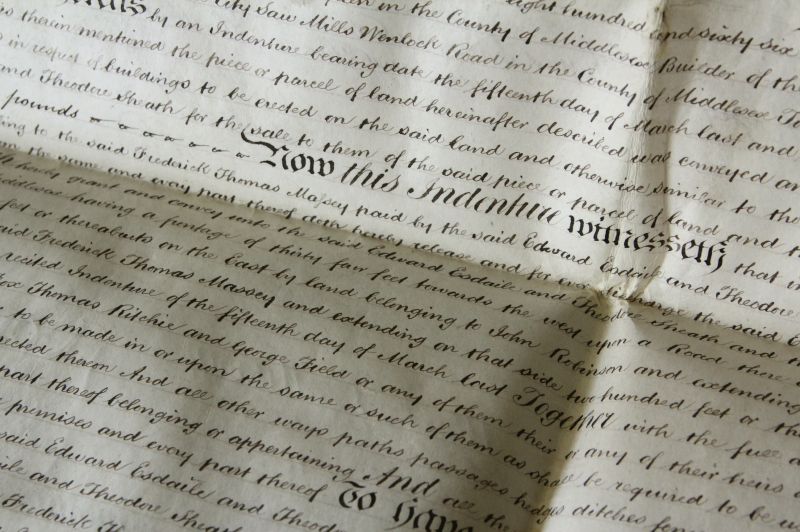 eight hundred and sixty six
City Saw Mills Wenlock Road in the County of Middlesex Builder of the
by an Indenture bearing date the fifteenth day of March last and
therein mentioned the piece or parcel of land hereinafter described was conveyed
in respect of buildings to be erected on the said land and otherwise similar to the
and Theodore Sheath for the sale to them of the said piece or parcel of land and
pounds Now this Indenture witnesseth that
to the said Frederick Thomas Massey paid by the said Edward Esdaile and Theodore
the same and every part thereof doth hereby release and for ever discharge the said
hereby grant and convey unto the said Edward Esdaile and Theodore Sheath and
Middlesex having a frontage of thirty four feet towards the west upon a Road there
feet or thereabouts on the East by land belonging to John Robinson and extending
said Frederick Thomas Massey and extending on that side two hundred feet or
recited Indenture of the fifteenth day of March last Together with the full
Thomas Ritchie and George Field or any of them their or any of their heirs
to be made in or upon the same or such of them as shall be required to be
erected thereon And all other ways paths passages hedges ditches
part thereof belonging or appertaining And all the
premises and every part thereof To have
said Edward Esdaile and Theodore
and Theodore Sheath
Frederick